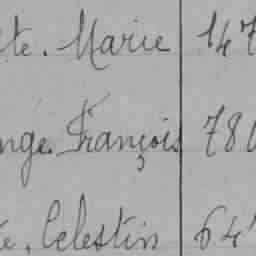 te. Marie 147
nge. François 780
e, Celestin 64